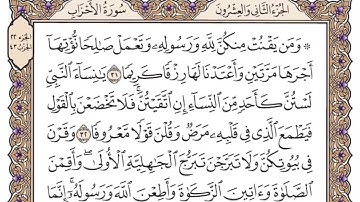 الجزء الثاني والعشرون
سورة الأحزاب
۞ وَمَن يَقْنُتْ مِنكُنَّ لِلَّهِ وَرَسُولِهِۦ وَتَعْمَلْ صَٰلِحًا نُّؤْتِهَآ
أَجْرَهَا مَرَّتَيْنِ وَأَعْتَدْنَا لَهَا رِزْقًا كَرِيمًا ٣١ يَٰنِسَآءَ ٱلنَّبِيِّ
لَسْتُنَّ كَأَحَدٍ مِّنَ ٱلنِّسَآءِ إِنِ ٱتَّقَيْتُنَّ فَلَا تَخْضَعْنَ بِٱلْقَوْلِ
فَيَطْمَعَ ٱلَّذِي فِي قَلْبِهِۦ مَرَضٌ وَقُلْنَ قَوْلًا مَّعْرُوفًا ٣٢ وَقَرْنَ
فِي بُيُوتِكُنَّ وَلَا تَبَرَّجْنَ تَبَرُّجَ ٱلْجَٰهِلِيَّةِ ٱلْأُولَىٰ وَأَقِمْنَ
ٱلصَّلَوٰةَ وَءَاتِينَ ٱلزَّكَوٰةَ وَأَطِعْنَ ٱللَّهَ وَرَسُولَهُۥٓ إِنَّمَا